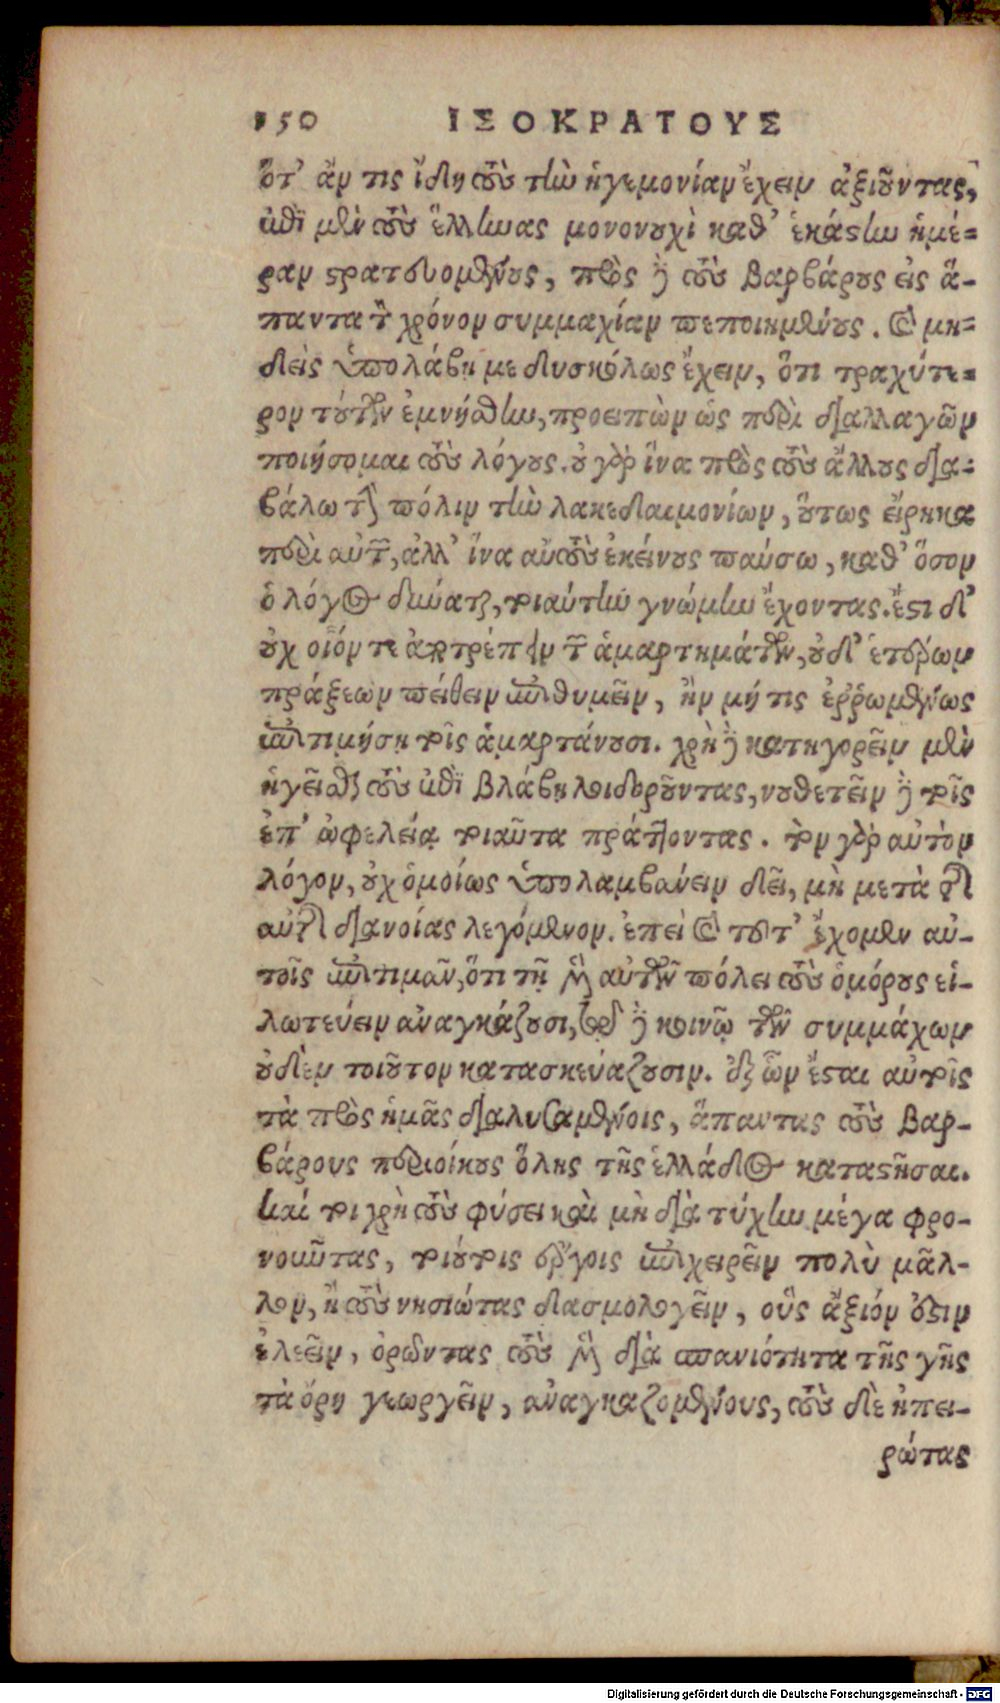 150 ΙΣΟΚΡΑΤΟΥΣ
ὅτ' ἄν τις ἴδῃ τοὺς τὴν ἡγεμονίαν ἔχειν ἀξιοῦντας,
ἐπὶ μὲν τοὺς ἕλληνας μονονουχὶ καθ' ἑκάστην ἡμέ=
ραν στρατευομένους, πρὸς δὲ τοὺς βαρβάρους εἰς ἅ-
παντα τὸν χρόνον συμμαχίαν πεποιημένους. καὶ μη=
δεὶς ὑπολάβῃ με δυσκόλως ἔχειν, ὅτι τραχύτε=
ρον τούτων ἐμνήσθην, προειπὼν ὡς περὶ διαλλαγῶν
ποιήσομαι τοὺς λόγους. οὐ γὰρ ἵνα πρὸς τοὺς ἄλλους δια-
βάλω τὴν πόλιν τὴν λακεδαιμονίων, οὕτως εἴρηκα
περὶ αὐτῶν, ἀλλ' ἵνα αὐτοὺς ἐκείνους παύσω, καθ' ὅσον
ὁ λόγος δύναται, τοιαύτην γνώμην ἔχοντας. ἔστι δ'
οὐχ οἷόν τε ἀποτρέπειν τῶν ἁμαρτημάτων, οὐδ' ἑτέρων
πράξεων πείθειν ἐπιθυμεῖν, ἢν μή τις ἐῤῥωμένως
ἐπιτιμήσῃ τοῖς ἁμαρτάνουσι. χρὴ δὲ κατηγορεῖν μὲν
ἡγεῖσθαι τοὺς ἐπὶ βλάβῃ λοιδοροῦντας, νουθετεῖν δὲ τοῖς
ἐπ' ὠφελείᾳ τοιαῦτα πράττοντας. τὸν γὰρ αὐτὸν
λόγον, οὐχ ὁμοίως ὑπολαμβάνειν δεῖ, μὴ μετὰ τῆς
αὐτῆς διανοίας λεγόμενον. ἐπεὶ καὶ τοῦτ' ἔχομεν αὐ-
τοῖς ἐπιτιμᾶν, ὅτι τῇ μὲν αὐτῶν πόλει τοὺς ὁμόρους εἱ-
λωτεύειν ἀναγκάζουσι, τῷ δὲ κοινῷ τῶν συμμάχων
οὐδὲν τοιοῦτον κατασκευάζουσιν. ἐξ ὧν ἔσται αὐτοῖς
τὰ πρὸς ἡμᾶς διαλυσαμένοις, ἅπαντας τοὺς βαρ-
βάρους περιοίκους ὅλης τῆς ἑλλάδος καταστῆσαι.
καί τοι χρὴ τοὺς φύσει καὶ μὴ διὰ τύχην μέγα φρο-
νοῦντας, τοιούτοις ἔργοις ἐπιχειρεῖν πολὺ μᾶλ-
λον, ἢ τοὺς νησιώτας δασμολογεῖν, οὓς ἄξιόν ἐστιν
ἐλεεῖν, ὁρῶντας τοὺς μὲν διὰ σπανιότητα τῆς γῆς
τὰ ὄρη γεωργεῖν, ἀναγκαζομένους, τοὺς δὲ ἠπει-
ρώτας
Digitalisierung gefördert durch die Deutsche Forschungsgemeinschaft - DFG